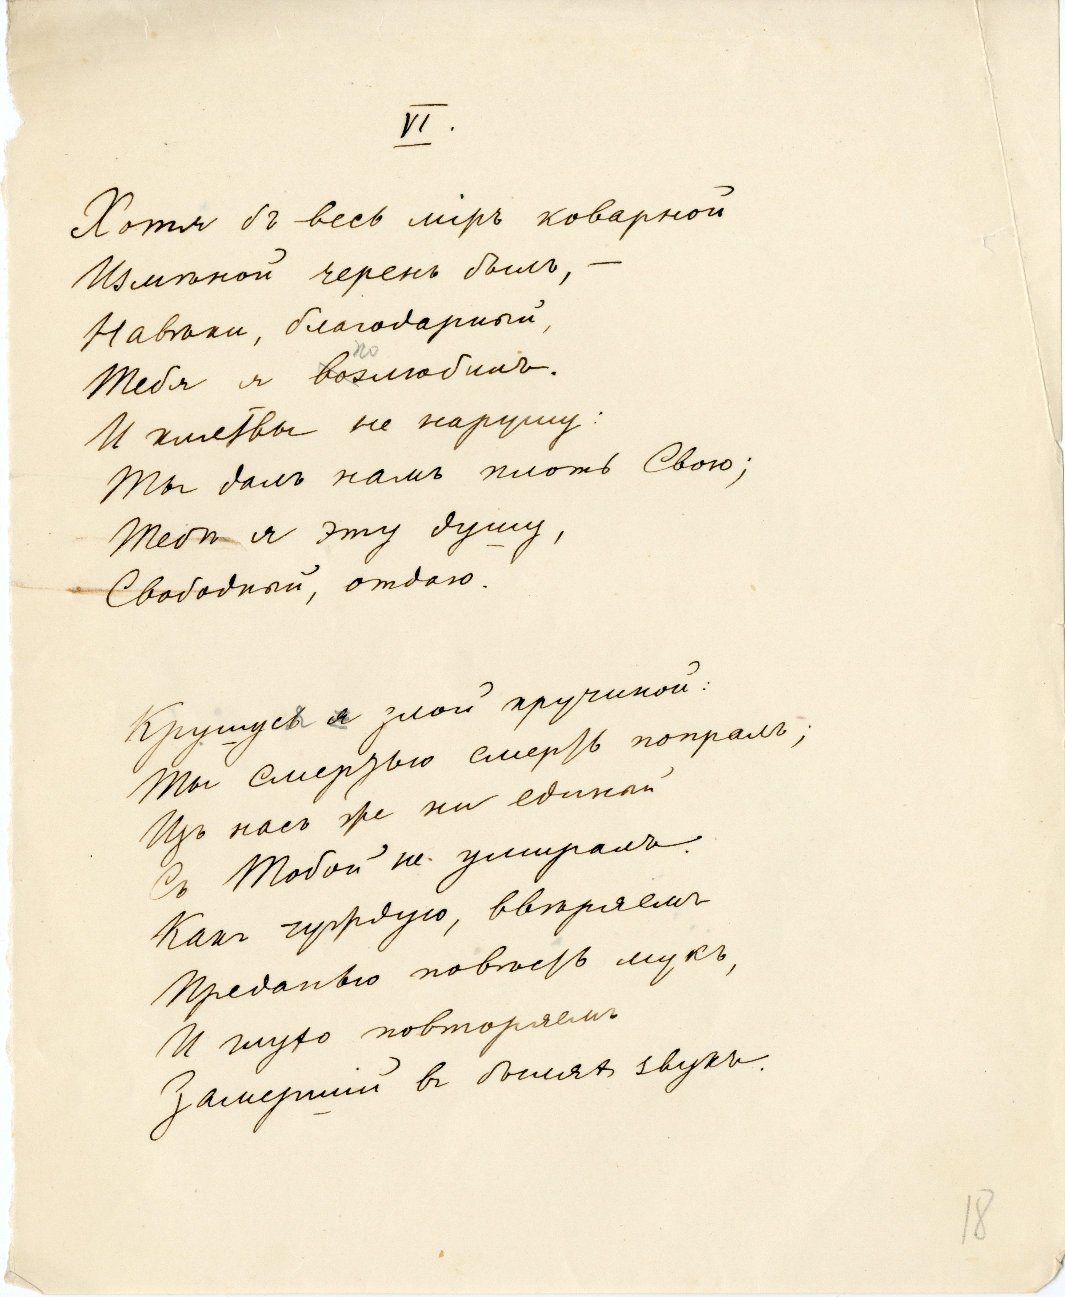 VI.
Хотя бъ весь міръ коварной
Измѣной черенъ былъ, —
Навѣки, благодарный,
по
Тебя я возлюбилъ.
И клятвы не нарушу:
Ты далъ намъ плоть Свою;
Тебѣ я эту душу,
Свободный, отдаю.
Крушусь я злой кручиной:
Ты смертью смерть попралъ;
Изъ насъ же ни единый
Съ Тобой не умиралъ.
Какъ чуждую, ввѣряемъ
Преданью повѣсть мукъ,
И глухо повторяемъ
Замершій въ быляхъ звукъ.
18